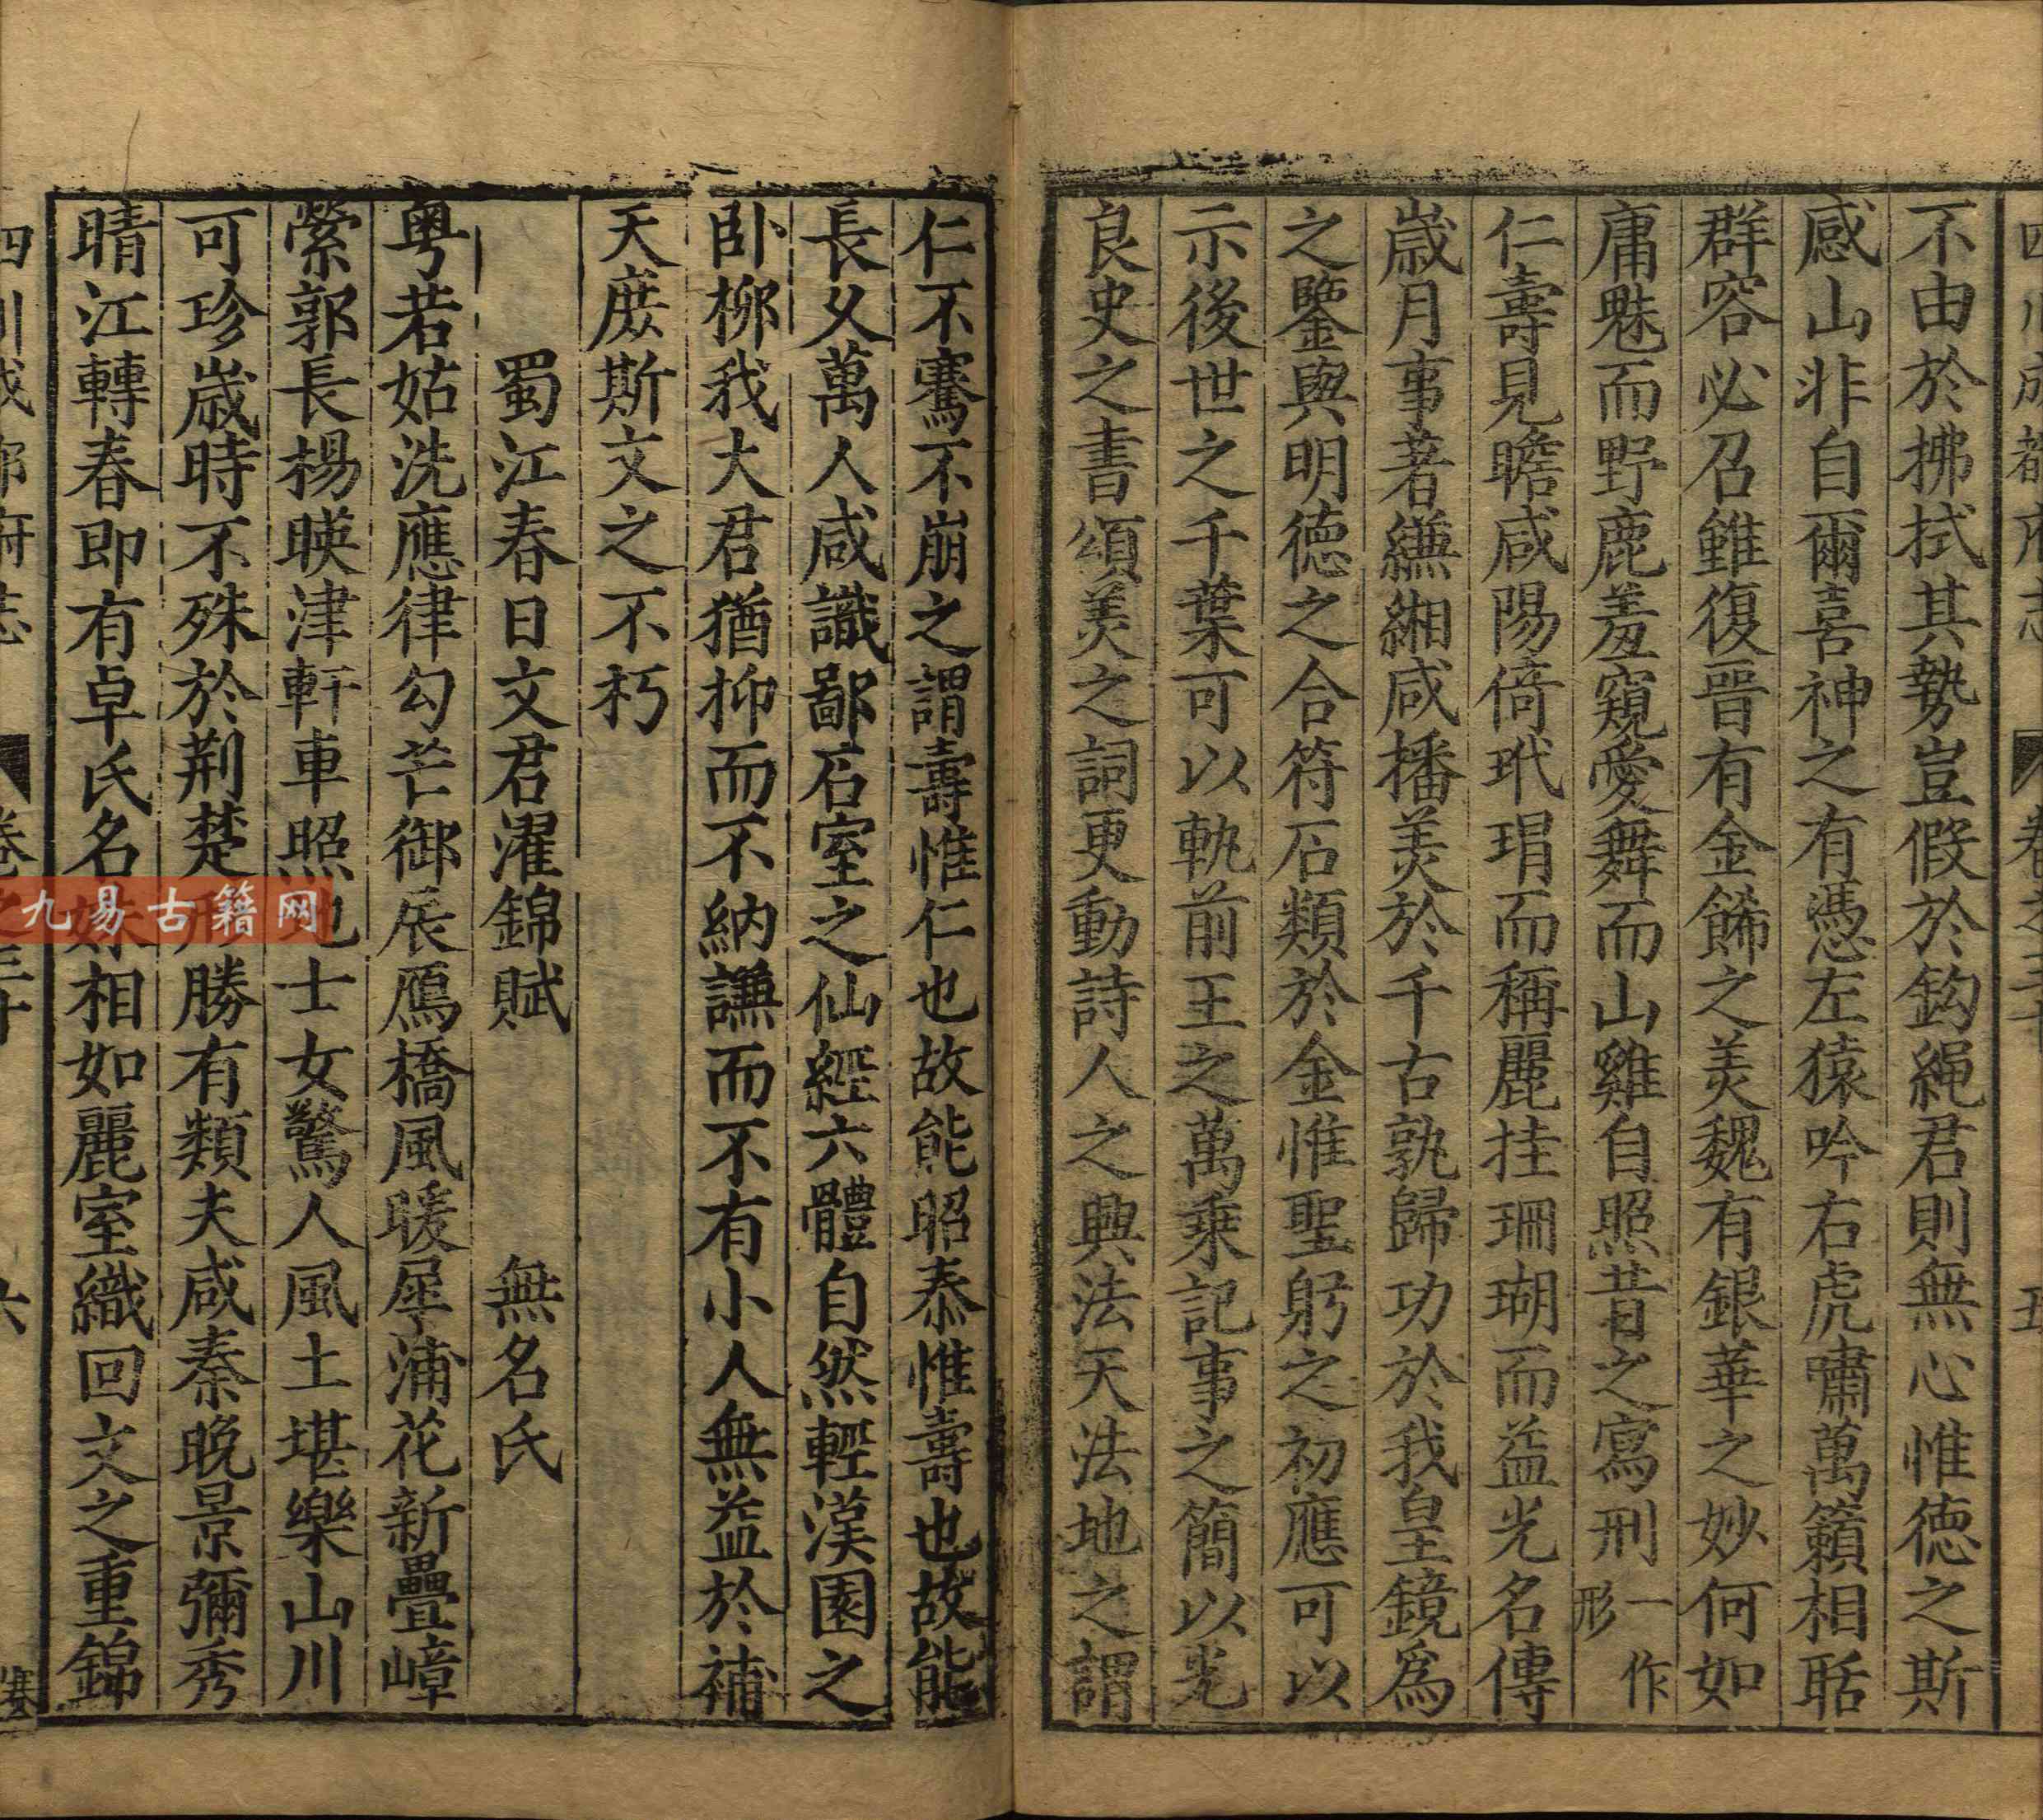 不由於拂拭其勢豈假於鈎繩君則無心惟德之斯
感山非自爾喜神之有憑左猿吟右虎嘯萬籟相聒
群容必召雖復晉有金飾之美魏有銀華之妙何如
庸魅而野鹿羞窺愛舞而山雞自照昔之寫刑一作形
仁壽見瞻咸陽倚玳瑁而稱麗挂珊瑚而益光名傳
歲月事著縑緗咸播美於千古孰歸功於我皇鏡爲
之鑒與明德之合符石類於金惟聖躬之初應可以
示後世之千葉可以軌前王之萬乘記事之簡以光
良史之書頌美之詞更動詩人之興法天法地之謂
仁不騫不崩之謂壽惟仁也故能昭泰惟壽也故能
長乂萬人咸識鄙石室之仙經六體自然輕漢園之
卧柳我大君猶抑而不納謙而不有小人無益於補
天庶斯文之不朽
蜀江春日文君濯錦賦 無名氏
粤若姑洗應律勾芒御辰鴈橋風暖犀浦花新疊嶂
縈郭長楊暎津軒車照地士女驚人風土堪樂山川
可珍歲時不殊於荆楚形勝有類夫咸秦晚景彌秀
晴江轉春即有卓氏名姝相如麗室織回文之重錦
四川成都府志 卷之三十 六
九易古籍网